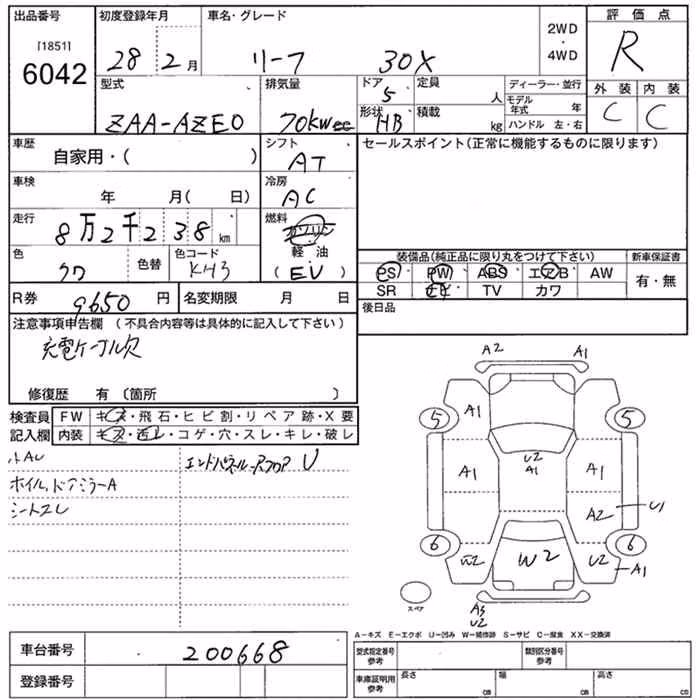 出品番号 初度登録年月 車名・グレード 2WD・4WD 評価点
[1851]
6042 28 2月 リーフ 30X R
型式 排気量 ドア 5 定員 人 ディーラー・並行 外装 内装
ZAA-AZE0 70kw cc 形状 HB 積載 kg モデル年式 年 C C
ハンドル 左・右
車歴 シフト セールスポイント(正常に機能するものに限ります)
自家用・( ) AT
車検 冷房
年 月( 日) AC
走行 燃料
8万2千238km ガソリン
軽油
色 色替 色コード (EV) 装備品(純正品に限り丸をつけて下さい) 新車保証書
クロ KH3 PS PW ABS エアB AW 有・無
SR TV カワ
R券 9650円 名変期限 月 日 後日品
注意事項申告欄 (不具合内容等は具体的に記入して下さい)
充電ケーブル欠
修復歴 有 (箇所 )
検査員 FW キズ・飛石・ヒビ割・リペア跡・X要
記入欄 内装 キズ・汚レ・コゲ・穴・スレ・キレ・破レ
小AU エンドパネル・Rフロア U
ホイル、ドアミラーA
シートスレ
A2 A1
5 A1 5
U2
A1 A1 A1
A2 U1
6 W2 W2 U2 6
A1
スペア
A3
U2
A-キズ E-エクボ U-凹み W-補修跡 S-サビ C-腐食 XX-交換済
車台番号 200668 型式指定番号 参考 類別区分番号 参考
登録番号 車庫証明用 参考 長さ cm 幅 cm 高さ cm